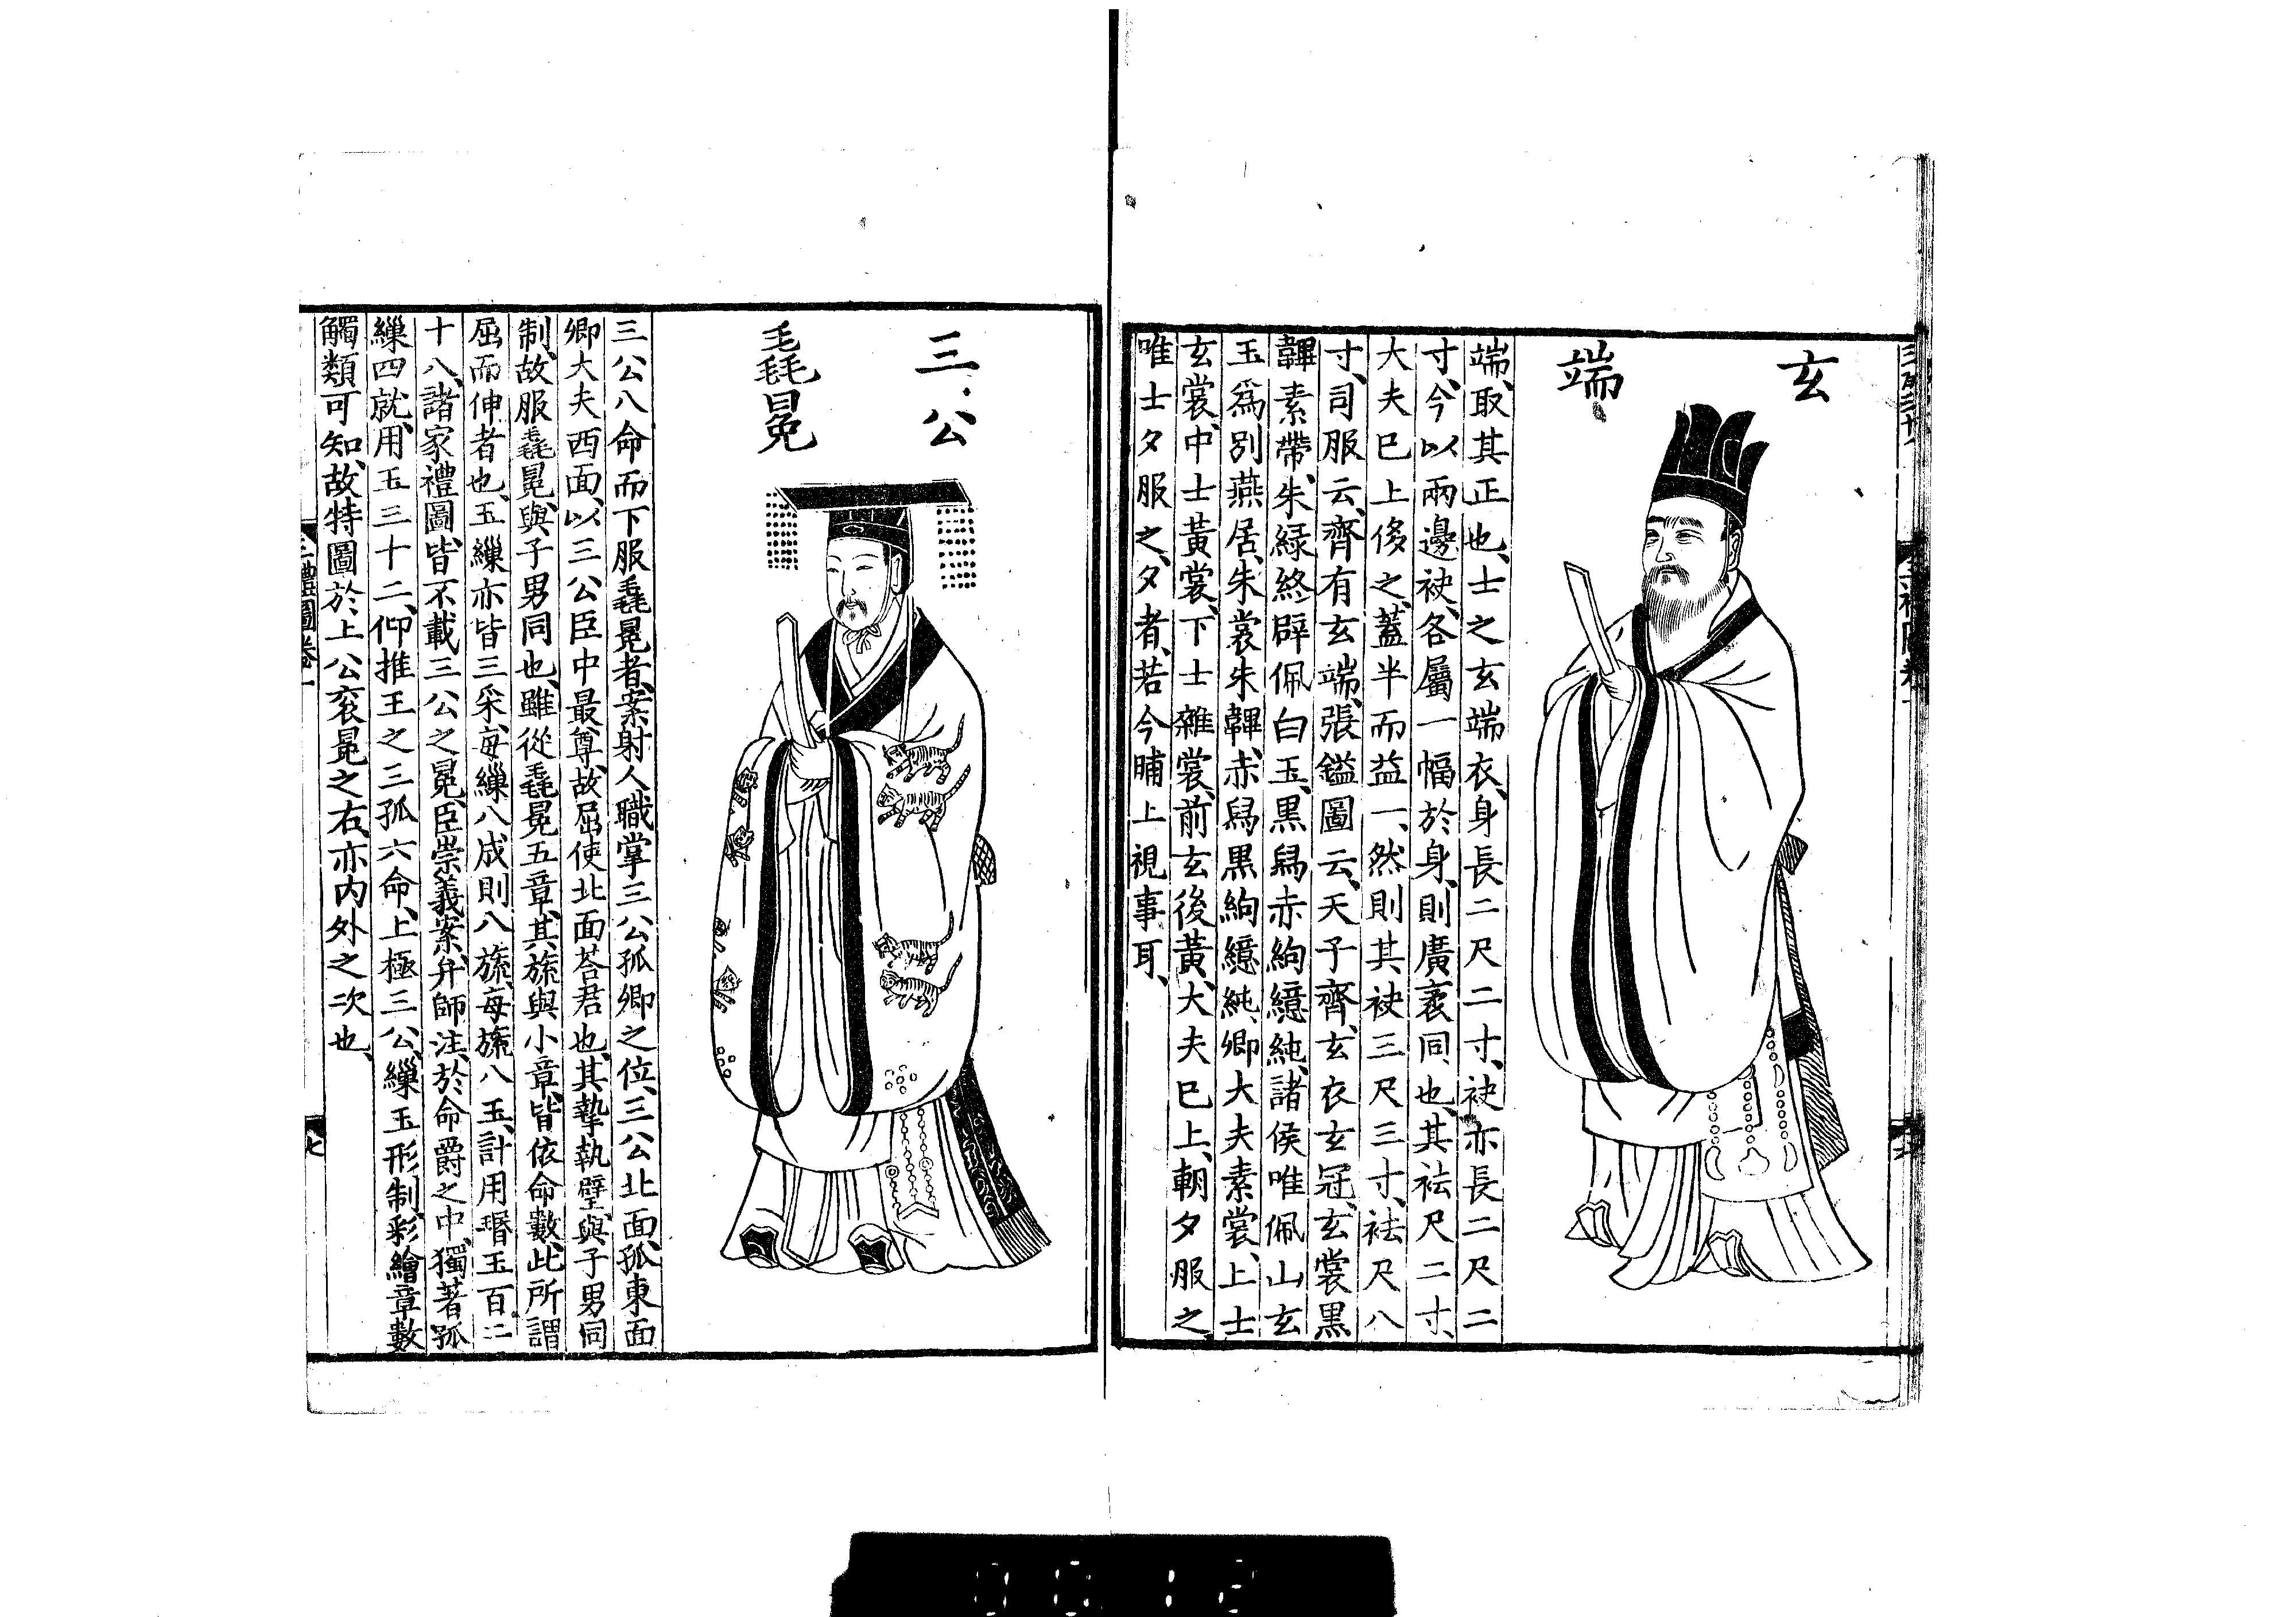 玄端
端、取其正也、士之玄端衣、身長二尺二寸、袂亦長二尺二
寸、今以兩邊袂、各屬一幅於身、則廣袤同也、其袪尺二寸、
大夫已上侈之、蓋半而益一、然則其袂三尺三寸、袪尺八
寸、司服云、齊有玄端、張鎰圖云、天子齊、玄衣玄冠、玄裳黑
韠、素帶、朱緑終辟、佩白玉、黑舄赤絇繶純、諸侯唯佩山玄
玉爲別、燕居、朱裳朱韠、赤舄黑絇繶純、卿大夫素裳、上士
玄裳、中士黃裳、下士雜裳、前玄後黃、大夫已上、朝夕服之、
唯士夕服之、夕者、若今晡上視事耳、
三公
毳冕
三公八命而下服毳冕者、案射人職掌三公孤卿之位、三公北面、孤東面
卿大夫西面、以三公臣中最尊、故屈使北面荅君也、其摯執璧、與子男同
制、故服毳冕、與子男同也、雖從毳冕五章、其旒與小章、皆依命數、此所謂
屈而伸者也、五繅亦皆三采、每繅八成則八旒、每旒八玉、計用瑉玉百二
十八、諸家禮圖、皆不載三公之冕、臣崇義案、弁師注、於命爵之中、獨著孤
繅四就、用玉三十二、仰推王之三孤六命、上極三公、繅玉形制、彩繪章數
觸類可知、故特圖於上公袞冕之右、亦内外之次也、
三禮圖卷一
七